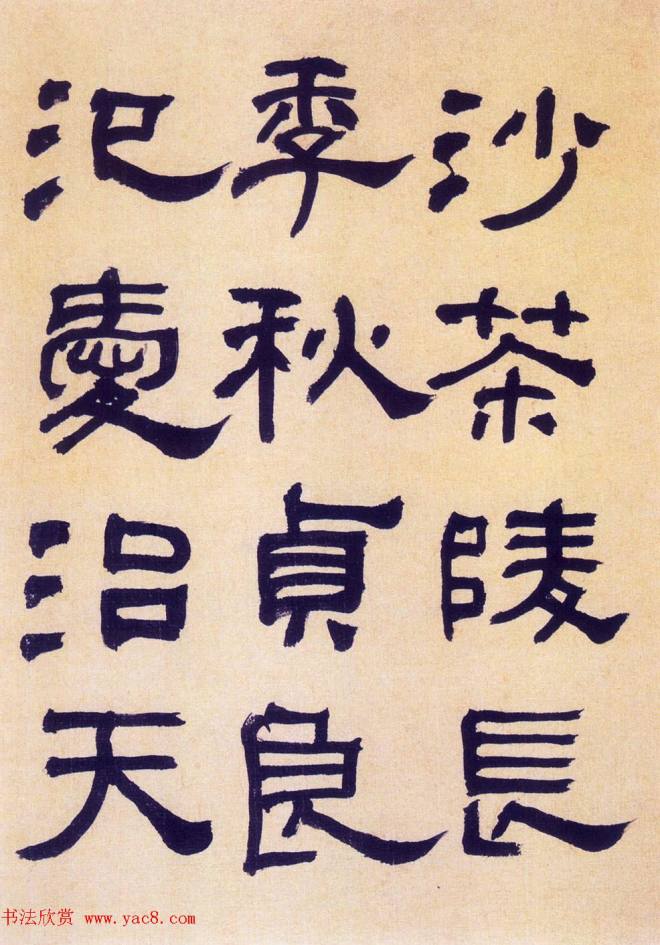 沙茶陵長
季秋貞良
汜愛天
书法欣赏 www.yac8.com